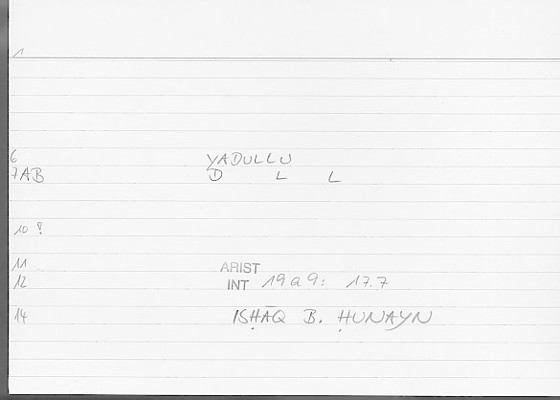 1
6 YADULLU
7AB D L L
10 ?
11 ARIST
12 INT 19a9: 17.7
14 ISḤĀQ B. ḤUNAYN